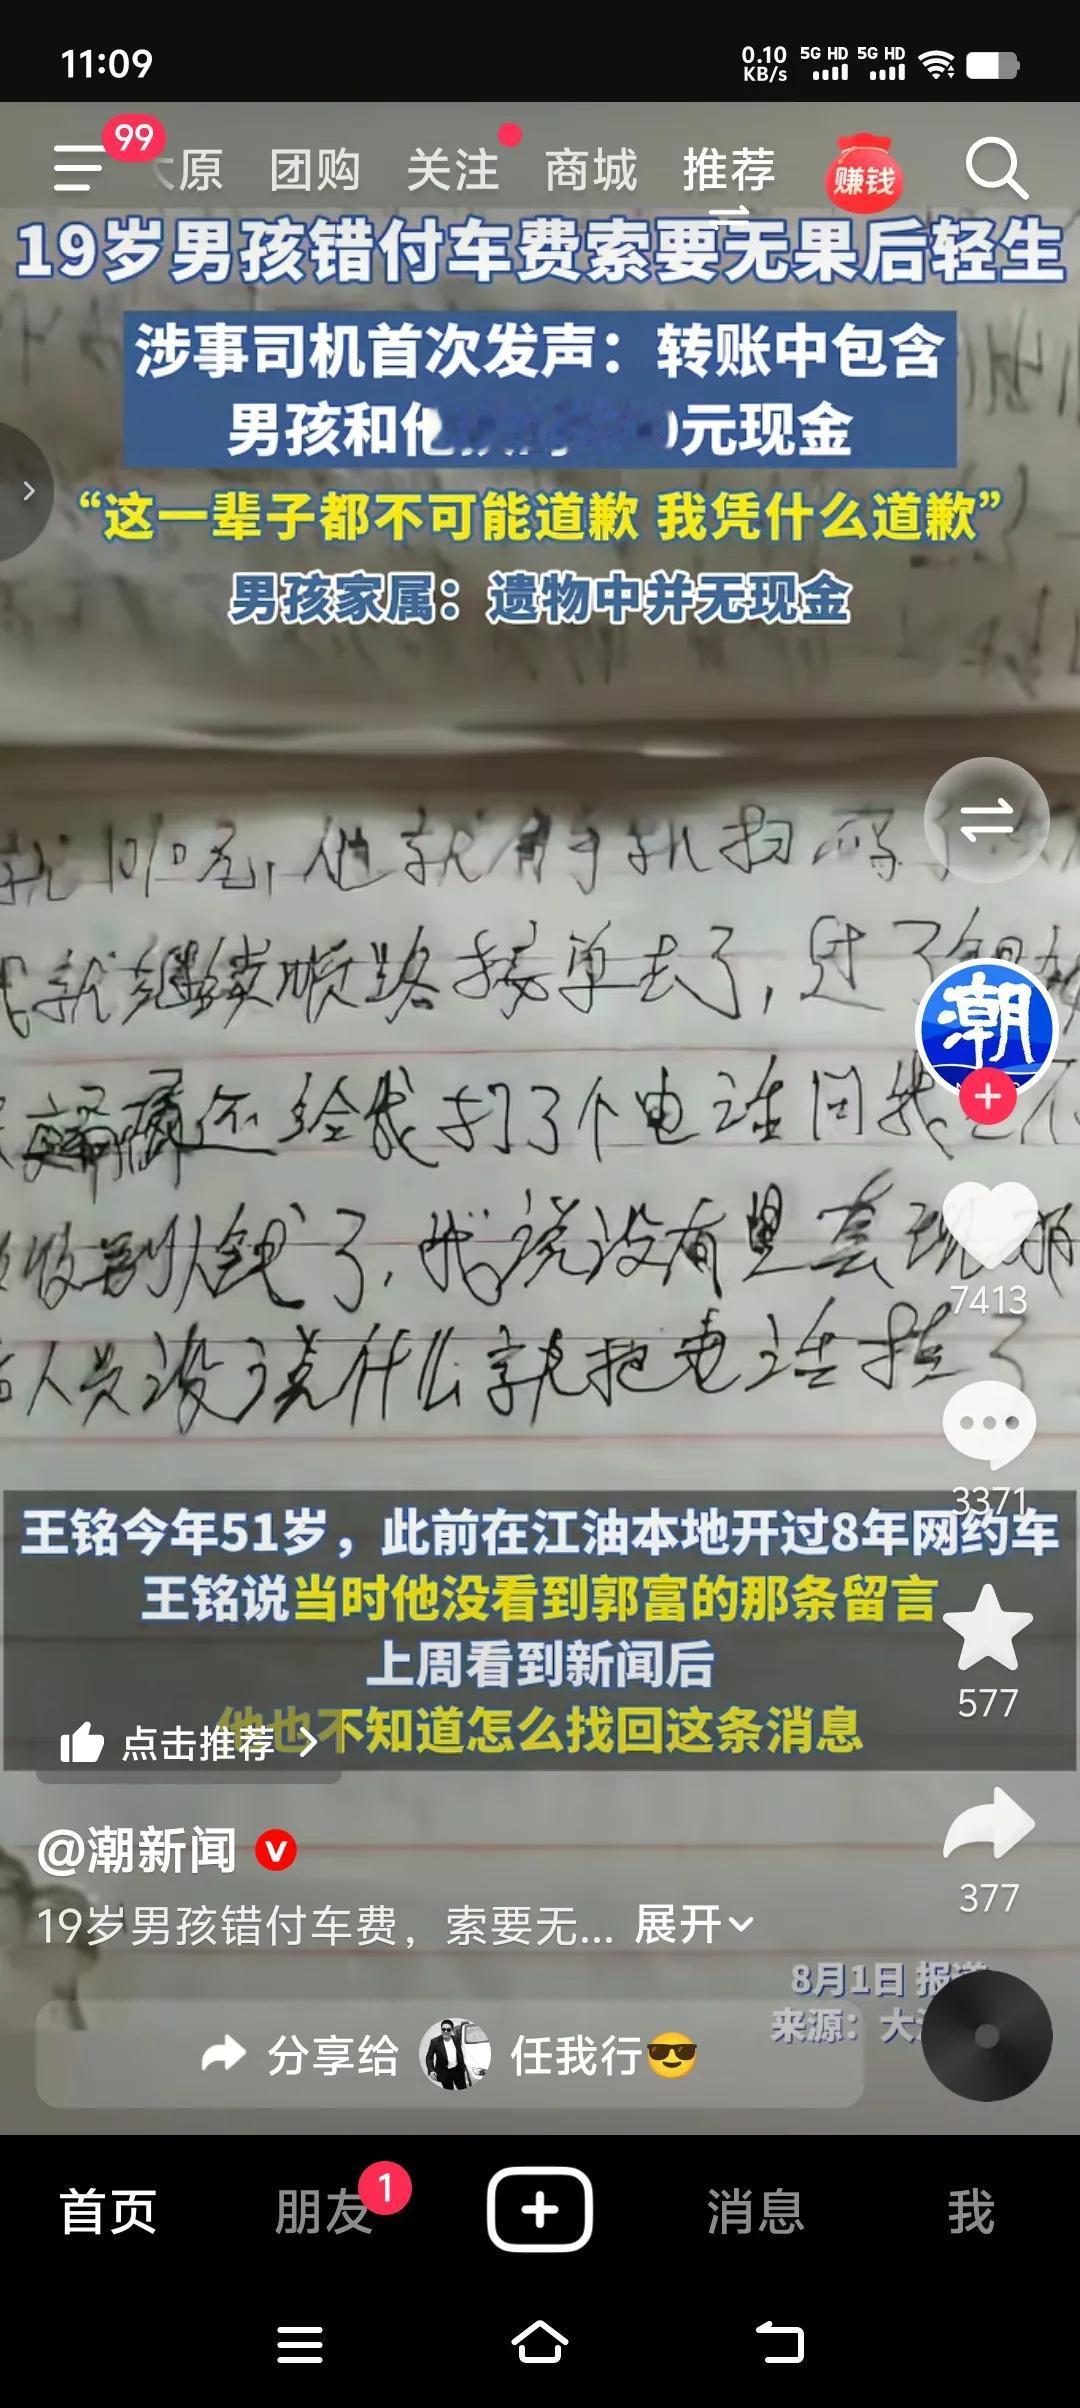 11:09
0.10 KB/s 5G HD 5G HD
99
原 团购 关注 商城 推荐 赚钱
19岁男孩错付车费索要无果后轻生
涉事司机首次发声：转账中包含
男孩和他 元现金
“这一辈子都不可能道歉 我凭什么道歉”
男孩家属：遗物中并无现金
就 他就有手机扫码了
就继续顺路接单去了，过了
还给我打了个电话问我
收到钱了，我说没有
人员没说什么就把电话挂了
潮
7413
3371
王铭今年51岁，此前在江油本地开过8年网约车
王铭说当时他没看到郭富的那条留言
上周看到新闻后
他也不知道怎么找回这条消息
577
点击推荐
@潮新闻
377
19岁男孩错付车费，索要无... 展开
8月1日 报道
来源：大
分享给 任我行😎
首页 朋友 1 消息 我